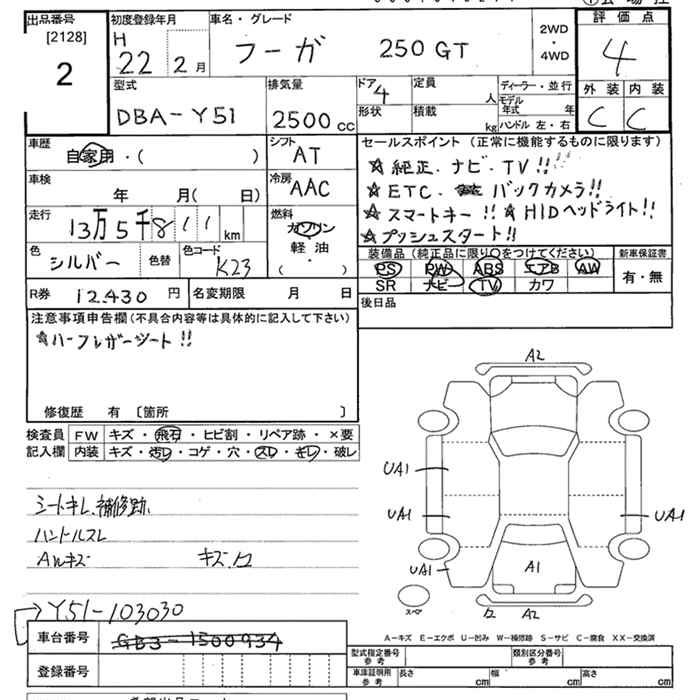 出品番号 初度登録年月 車名・グレード 評価点
[2128] H
2 22 2月 フーガ 250GT 2WD・4WD 4
型式 排気量 ドア 4 定員 人 ディーラー・並行 外装 内装
DBA-Y51 2500 cc 形状 積載 kg モデル年式 年 C C
ハンドル 左・右
車歴 自家用・( ) シフト AT セールスポイント (正常に機能するものに限ります)
☆純正.ナビ.TV!!
車検 年 月( 日) 冷房 AAC ☆ETC. バックカメラ!!
☆スマートキー!! ☆HIDヘッドライト!!
走行 13万5千811 km 燃料 ガソリン 軽油 (・) ☆プッシュスタート!!
色 シルバー 色替 色コード K23 装備品(純正品に限り○をつけてください) 新車保証書
PS PW ABS エアB AW 有・無
SR ナビー TV カワ
R券 12,430 円 名変期限 月 日 後日品
注意事項申告欄(不具合内容等は具体的に記入して下さい)
☆ハーフレザーシート!!
修復歴 有 〔箇所 〕
検査員 FW キズ・飛石・ヒビ割・リペア跡・×要
記入欄 内装 キズ・汚レ・コゲ・穴・スレ・キレ・破レ
シートキレ、補修跡、
ハンドルスレ
Aルキズ キズ.凹
A2
UA1
UA1 UA1
UA1 A1
スペア A2
→Y51-103030
車台番号 GB3-1500934
登録番号
A-キズ E-エクボ U-凹み W-補修跡 S-サビ C-腐食 XX-交換済
型式指定番号 参考 類別区分番号 参考
車庫証明用 参考 長さ cm 幅 cm 高さ cm